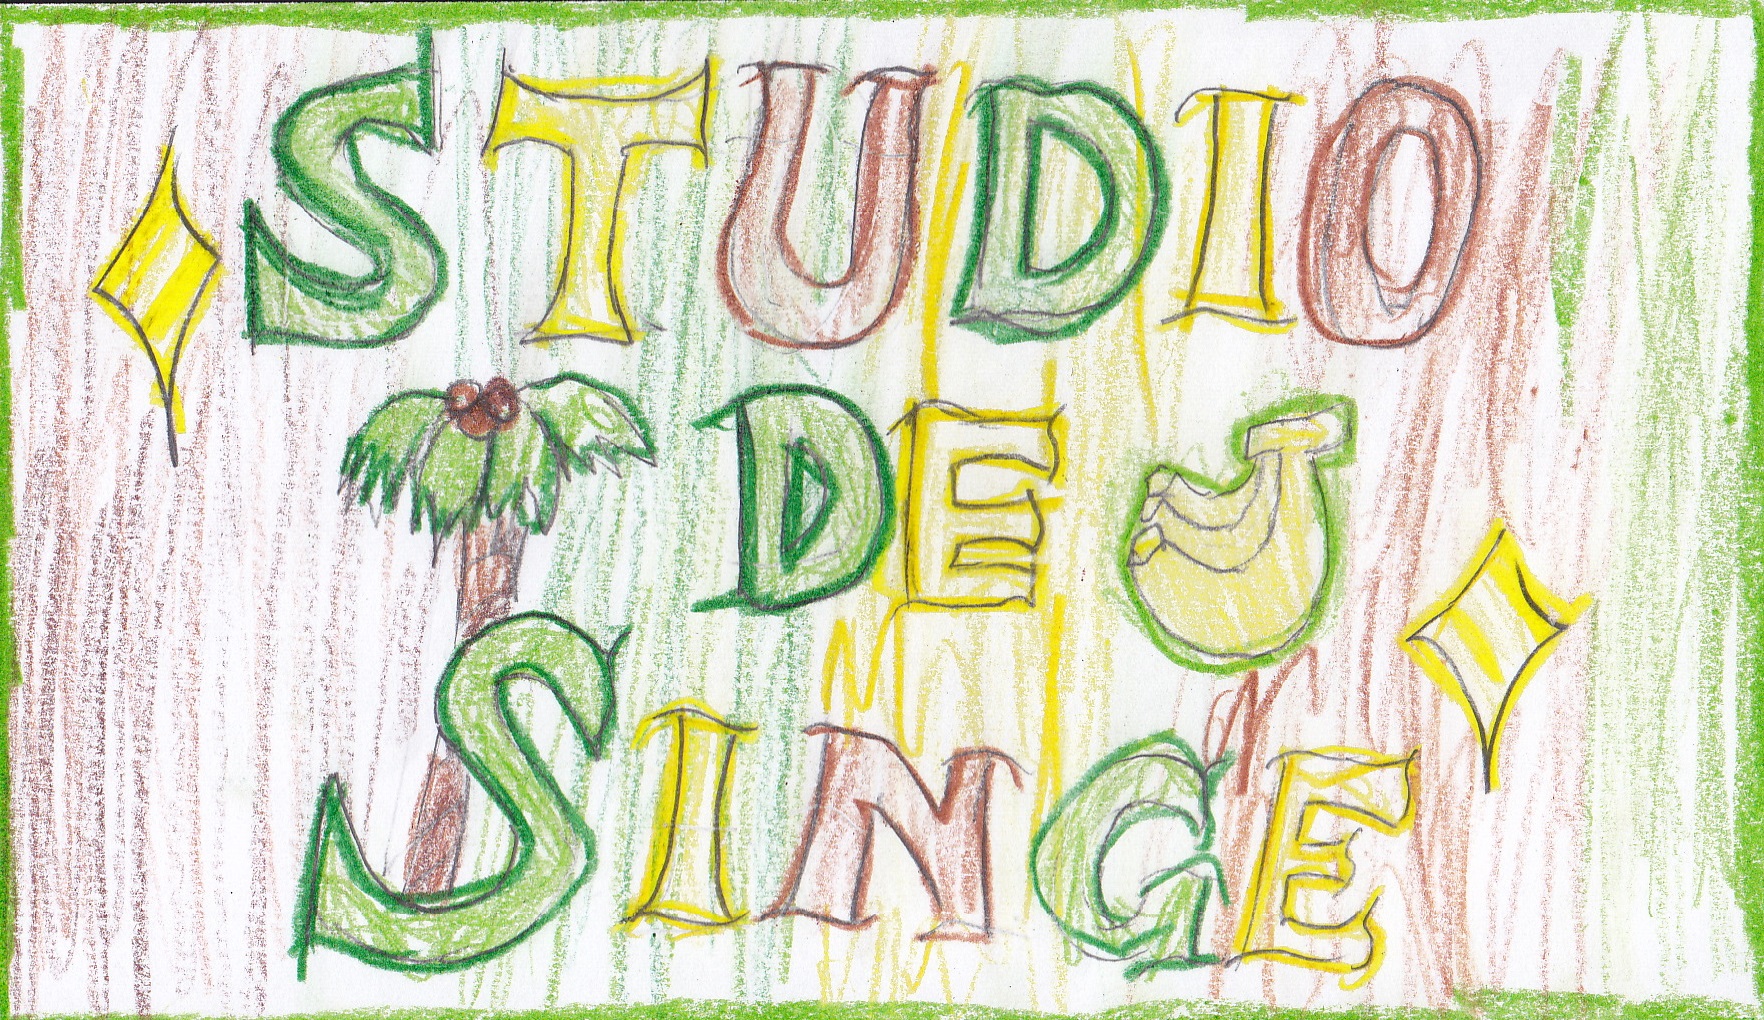 STUDIO
DE
SINGE